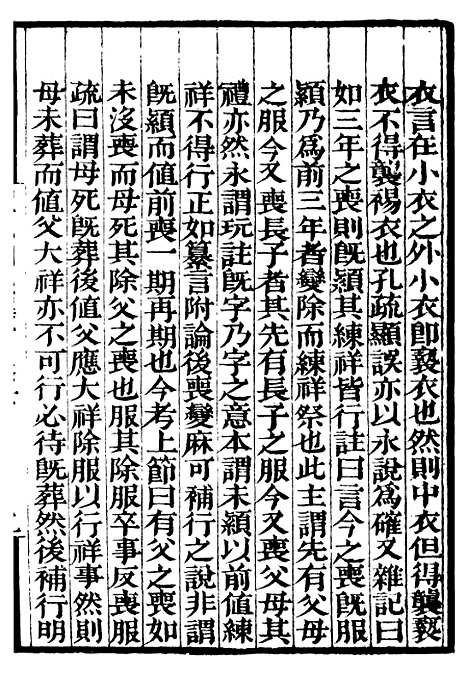 衣言在小衣之外小衣卽褻衣也然則中衣但得襲褻
衣不得襲裼衣也孔疏顯誤亦以永說爲確又雜記曰
如三年之喪則旣顈其練祥皆行註曰言今之喪旣服
顈乃爲前三年者變除而練祥祭也此主謂先有父母
之服今又喪長子者其先有長子之服今又喪父母其
禮亦然永謂玩註旣字乃字之意本謂未顈以前值練
祥不得行正如纂言附論後喪變麻可補行之說非謂
旣顈而值前喪一期再期也今考上節曰有父之喪如
未沒喪而母死其除父之喪也服其除服卒事反喪服
疏曰謂母死旣葬後值父應大祥除服以行祥事然則
母未葬而值父大祥亦不可行必待旣葬然後補行明